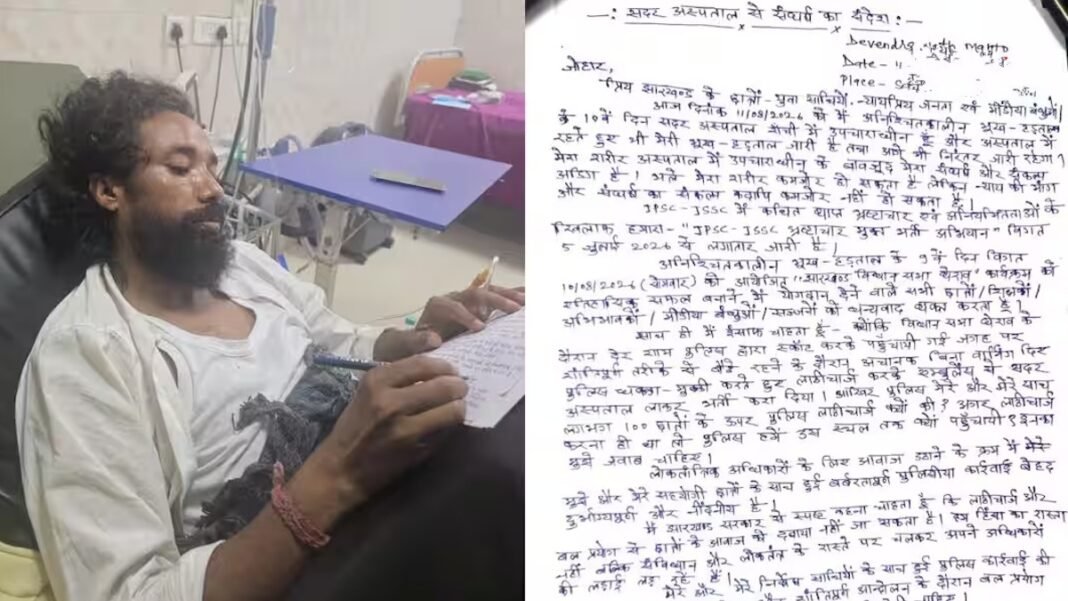 —: सदर अस्पताल से संघर्ष का संदेश :—
Devendra Mahto
Date - "
Place -
जोहार,
प्रिय झारखण्ड के छात्रों - युवा साथियों, न्यायप्रिय जनता एवं मीडिया बंधुओं।
आज दिनांक 11/08/2026 को मैं अनिश्चितकालीन भूख-हड़ताल
के 10वें दिन सदर अस्पताल राँची में उपचाराधीन हूँ और अस्पताल में
रहते हुए भी मेरी भूख-हड़ताल जारी है तथा आगे भी निरंतर जारी रहेगा।
मेरा शरीर अस्पताल में उपचाराधीन के बावजूद मेरा संघर्ष और संकल्प
अडिग है। भले मेरा शरीर कमजोर हो सकता है लेकिन न्याय की मांग
और संघर्ष का संकल्प कदापि कमजोर नहीं हो सकता है।
JPSC-JSSC में कथित व्याप्त भ्रष्टाचार एवं अनियमितताओं के
खिलाफ हमारा - "JPSC-JSSC भ्रष्टाचार मुक्त भर्ती अभियान" विगत
5 जुलाई 2026 से लगातार जारी है।
अनिश्चितकालीन भूख-हड़ताल के 9वें दिन विगत
10/08/2026 (सोमवार) को आयोजित "झारखण्ड विधान सभा घेराव" कार्यक्रम को
ऐतिहासिक सफल बनाने में योगदान देने वाले सभी छात्रों/शिक्षकों/
अभिभावकों/मीडिया बंधुओं/सज्जनों को धन्यवाद व्यक्त करता हूँ।
साथ ही मैं इंसाफ चाहता हूँ - क्योंकि विधान सभा घेराव के
दौरान देर शाम पुलिस द्वारा स्कॉट करके पहुँचायी गई जगह पर
शांतिपूर्ण तरीके से बैठे रहने के दौरान अचानक बिना वार्निंग दिए
पुलिस धक्का-मुक्की करते हुए लाठीचार्ज करके एम्बुलेंस से सदर
अस्पताल लाकर भर्ती करा दिया। आखिर पुलिस मेरे और मेरे साथ
लगभग 100 छात्रों के ऊपर पुलिस लाठीचार्ज क्यों की? अगर लाठीचार्ज
करना ही था तो पुलिस हमें उस स्थल तक क्यों पहुँचायी? इनका
मुझे जवाब चाहिए।
लोकतांत्रिक अधिकारों के लिए आवाज उठाने के क्रम में
मुझे और मेरे सहयोगी छात्रों के साथ हुई बर्बरतापूर्ण पुलिसीया कार्रवाई बेहद
दुर्भाग्यपूर्ण और निंदनीय है।
मैं झारखण्ड सरकार से स्पष्ट कहना चाहता हूँ कि लाठीचार्ज और
बल प्रयोग से छात्रों के आवाज को दबाया नहीं जा सकता है। हम हिंसा का रास्ता
नहीं बल्कि संविधान और लोकतंत्र के रास्ते पर चलकर अपने अधिकारों
की लड़ाई लड़ रहे हैं।
मेरे और मेरे निर्दोष साथियों के साथ हुई पुलिस कार्रवाई की
शांतिपूर्ण आन्दोलन के दौरान बल प्रयोग